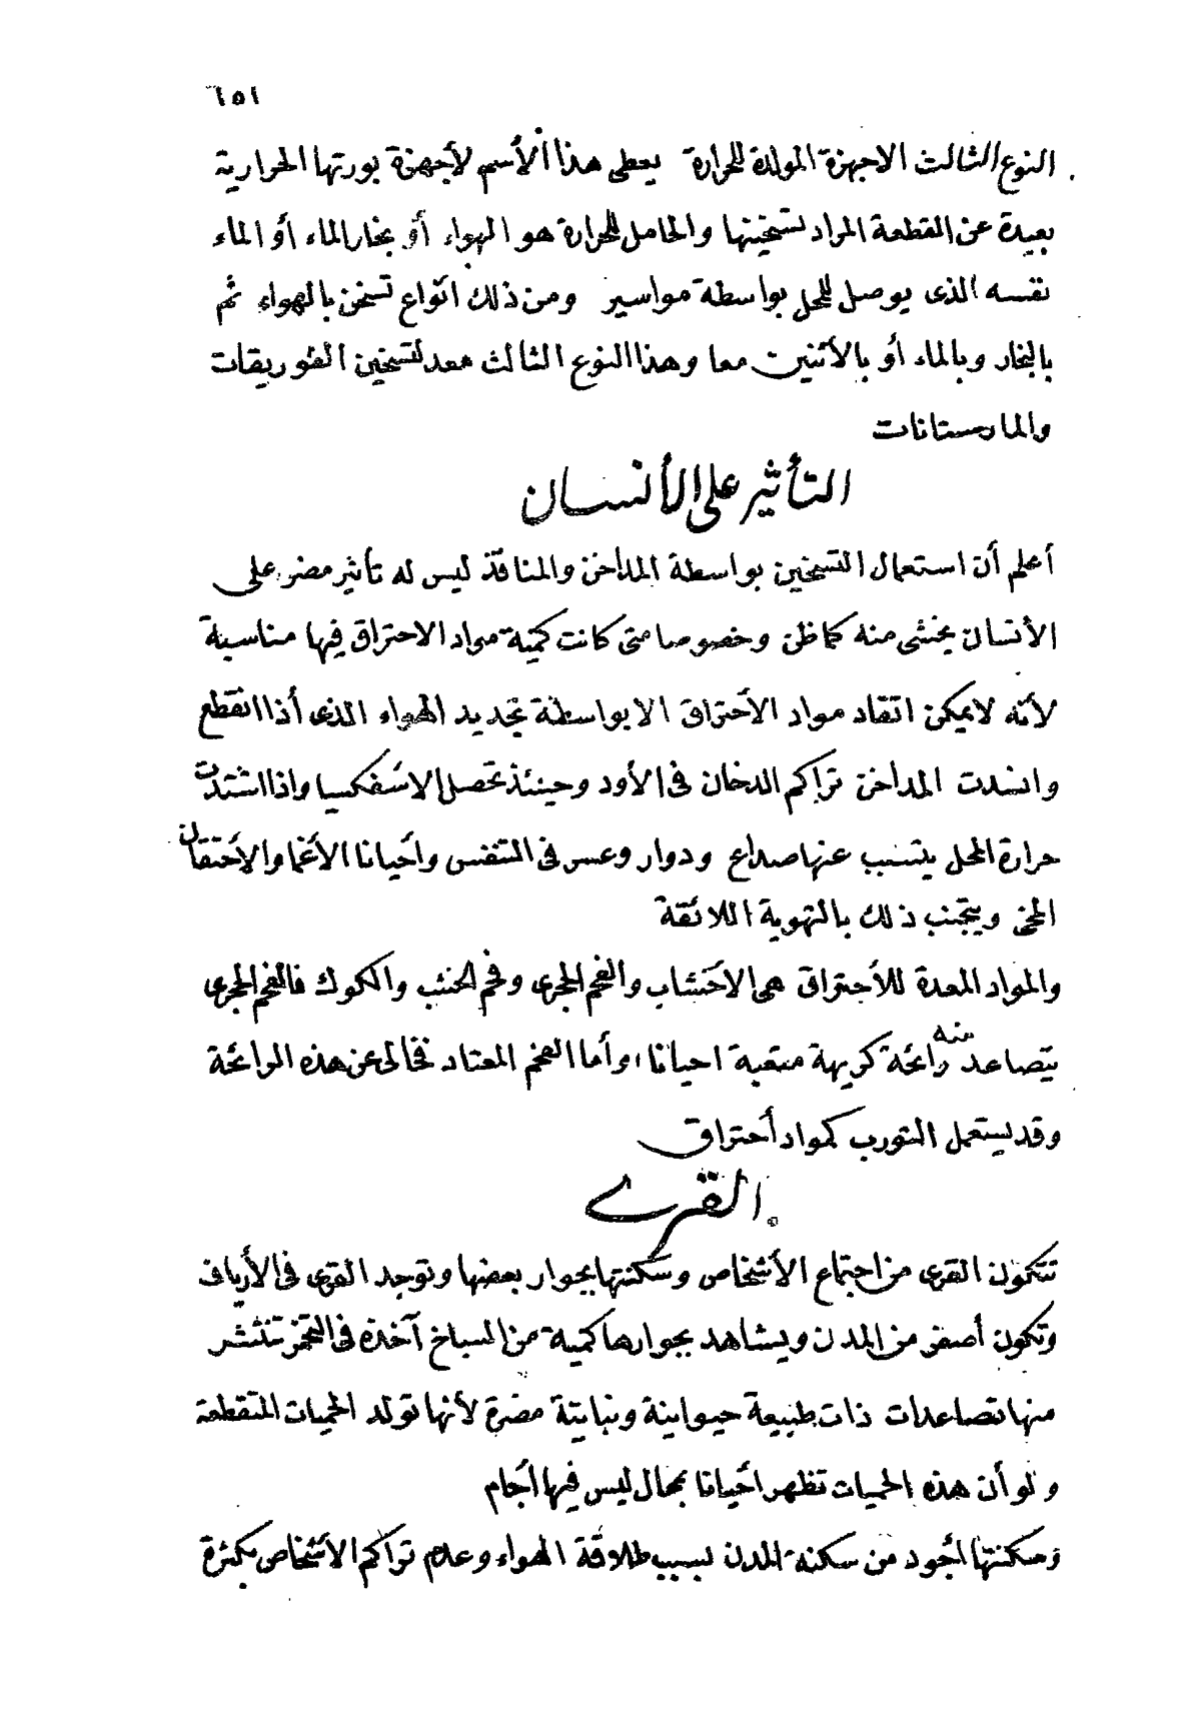 ٦٥١
النوع الثالث الاجهزة المولدة للحرارة يعطى هذا الأسم لأجهزة بورتها الحرارية
بعيدة عن القطعة المراد تسخينها والحامل للحرارة هو الهواء أو بخار الماء أو الماء
نفسه الذى يوصل للمحل بواسطة مواسير ومن ذلك انواع تسخن بالهواء ثم
بالبخار وبالماء أو بالأثنين معا وهذا النوع الثالث معد لتسخين الفوريقات
والمارستانات
التأثير على الأنسان
أعلم أن استعمال التسخين بواسطة المداخن والمنافذ ليس له تأثير مضر على
الأنسان يخشى منه كما ظن وخصوصا متى كانت كمية مواد الاحتراق فيها مناسبة
لأنه لا يمكن اتقاد مواد الأحتراق الا بواسطة تجديد الهواء الذى أذا انقطع
وانسدت المداخن تراكم الدخان فى الأود وحينئذ تحصل الاسفكسيا واذا اشتدت
حرارة المحل يتسبب عنها صداع ودوار وعسر فى التنفس وأحيانا الأغما والأحتقان
المخى ويتجنب ذلك بالتهوية اللائقة
والمواد المعدة للأحتراق هى الاخشاب والفحم الحجرى وفحم الخشب والكوك فالفحم الحجرى
يتصاعد منه رائحة كريهة متعبة احيانا، وأما الفحم المعتاد فخالى عن هذه الرائحة
وقد يستعمل التورب كمواد أحتراق
القرى
تتكون القرى من اجتماع الأشخاص وسكنتها بجوار بعضها وتوجد القرى فى الأرياف
وتكون أصغر من المدن ويشاهد بجوارها كمية من السباخ آخذه فى التخمر تنتشر
منها تصاعدات ذات طبيعة حيوانية ونباتية مضرة لأنها تولد الحميات المتقطعة
ولو أن هذه الحميات تظهر احيانا بمحال ليس فيها أجام
وسكنتها أجود من سكنة المدن لسبب طلاقة الهواء وعدم تراكم الأشخاص بكثرة